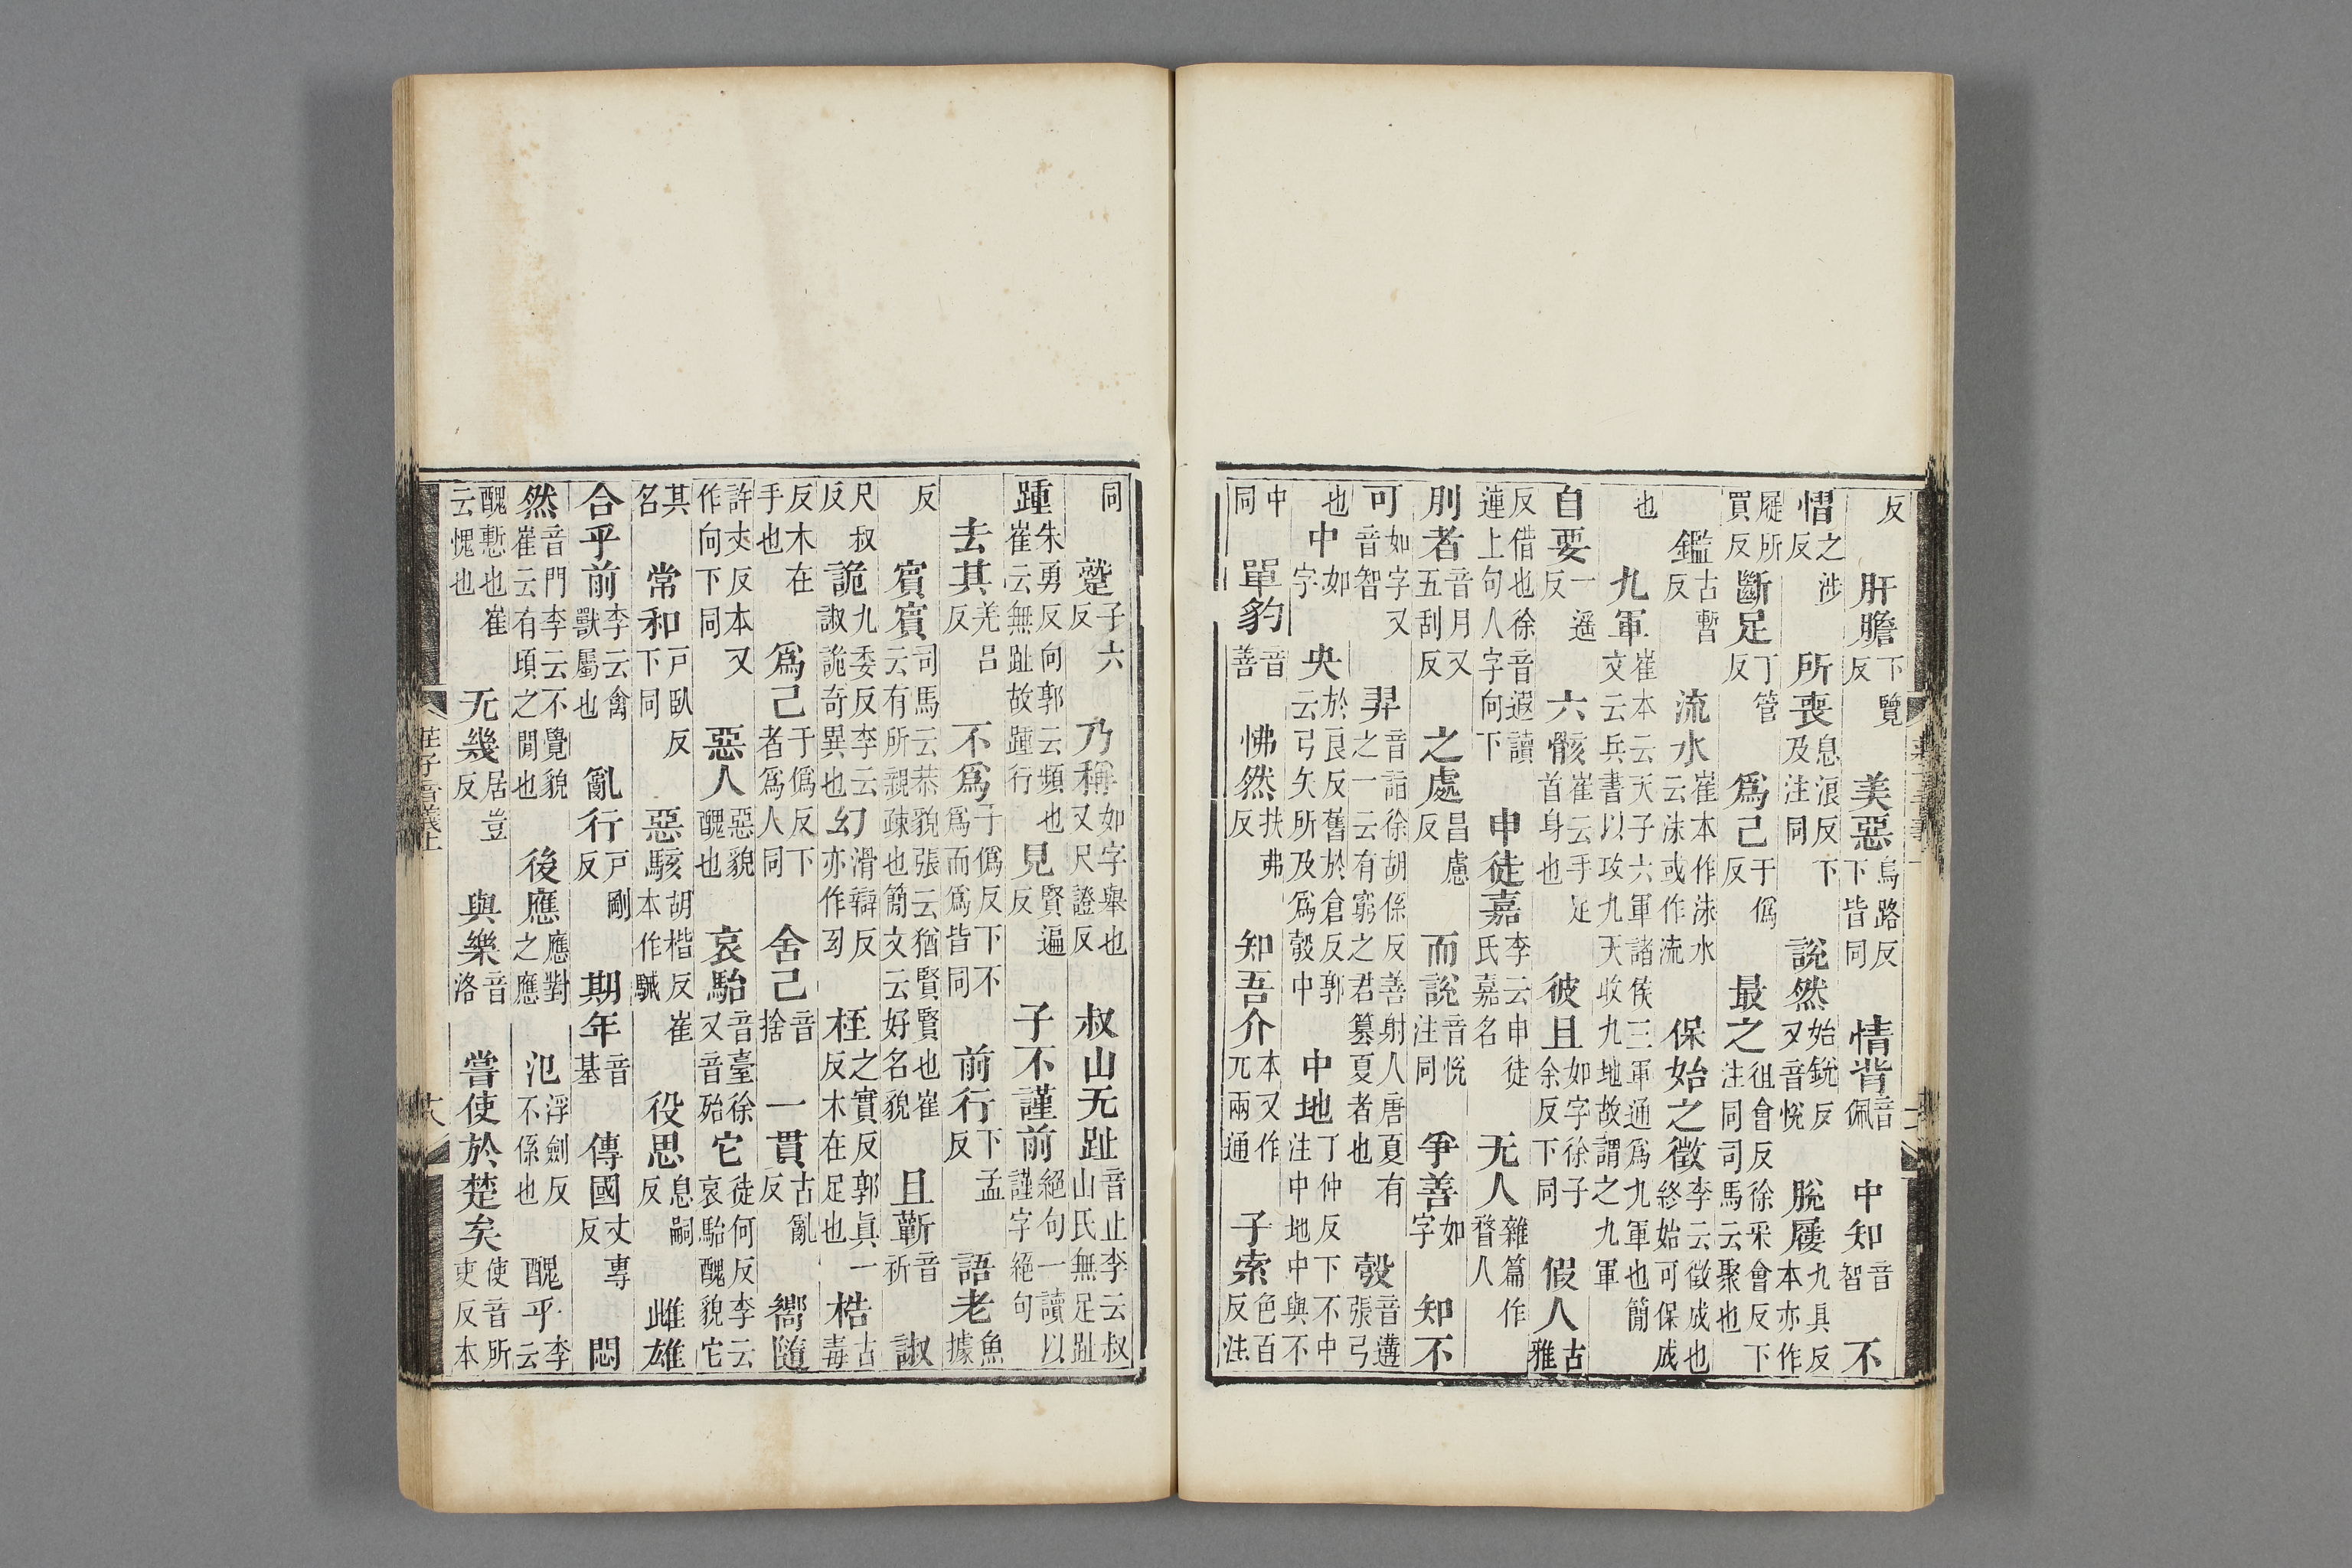 反 肝膽下覽反 美惡烏路反下皆同 情背音佩 中知音智 不
慴之涉反 所喪息浪反下及注同 說然始銳反又音悅 脫屨九具反本亦作
屣所買反 斷足丁管反 爲己于僞反 最之徂會反徐采會反下注同司馬云聚也
鑑古暫反 流水崔本作沬水云沬或作流 保始之徵李云徵成也終始可保成
也 九軍崔本云天子六軍諸侯三軍通爲九軍也簡文云兵書以攻九天收九地故謂之九軍
自要一遥反 六骸崔云手足首身也 彼且如字徐子余反下同 假人古雅
反借也徐音遐讀連上句人字向下 申徒嘉李云申徒氏嘉名 无人雜篇作瞀人
刖者音月又五刮反 之處昌慮反 而說音悅注同 爭善如字 知不
可如字又音智 羿音詣徐胡係反善射人唐夏有之一云有窮之君篡夏者也 彀音遘張弓
也 中如字 央於良反舊於倉反郭云弓矢所及爲彀中 中地丁仲反下不中注中地中與不
中同 單豹音善 怫然扶弗反 知吾介本又作兀兩通 子索色百反注
同 蹵子六反 乃稱如字舉也又尺證反 叔山无趾音止李云叔山氏無足趾
踵朱勇反向郭云頻也崔云無趾故踵行 見賢遍反 子不謹前絕句一讀以謹字絕句
去其羌吕反 不爲子僞反下不爲而爲皆同 前行下孟反 語老魚據
反 賓賓司馬云恭貌張云猶賢賢也崔云有所親疎也簡文云好名貌 且蘄音祈 諔
尺叔反 詭九委反李云諔詭奇異也 幻滑辯反亦作 桎之實反郭真一反木在足也 梏古毒
反木在手也 爲己于僞反下者爲人同 舍己音捨 一貫古亂反 嚮隨
許丈反本又作向下同 惡人惡貌醜也 哀駘音臺徐又音殆 它徒何反李云哀駘醜貌它
其名 常和戸臥反下同 惡駭胡楷反崔本作駴 役思息嗣反 雌雄
合乎前李云禽獸屬也 亂行戸剛反 期年音基 傳國丈專反 悶
然音門李云不覺貌崔云有頃之閒也 後應應對之應 氾浮劍反不係也 醜乎李云
醜慙也崔云愧也 无幾居豈反 與樂音洛 嘗使於楚矣使音所吏反本
莊子音義上 十八